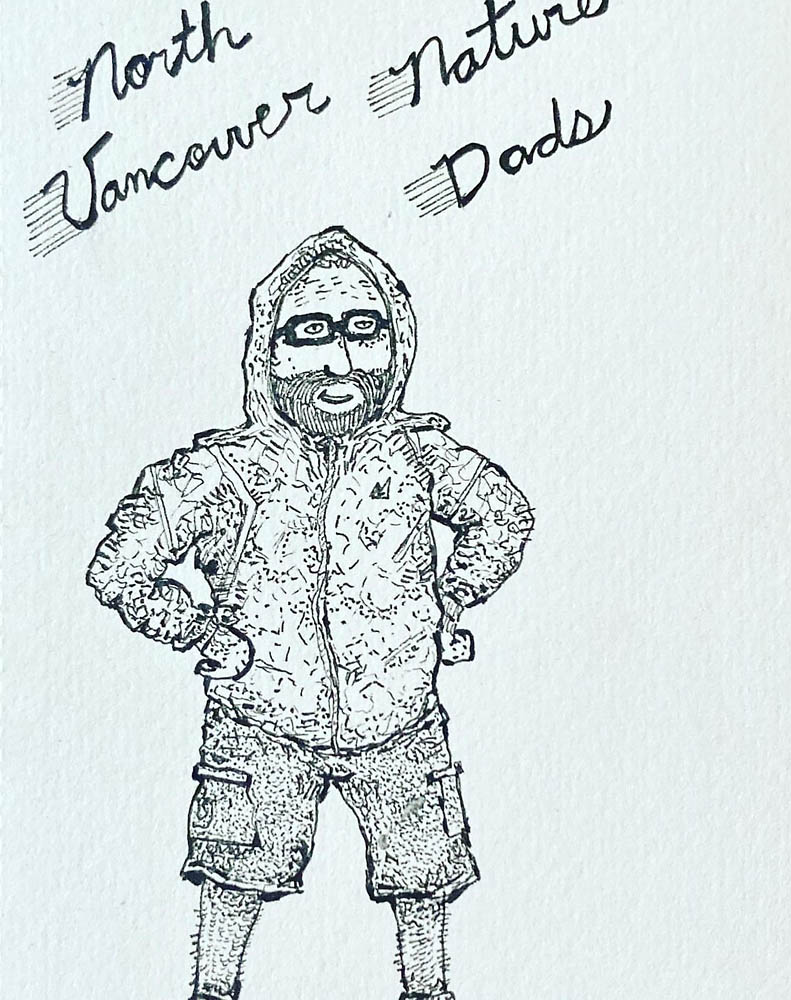 North
Vancouver
Nature
Dads